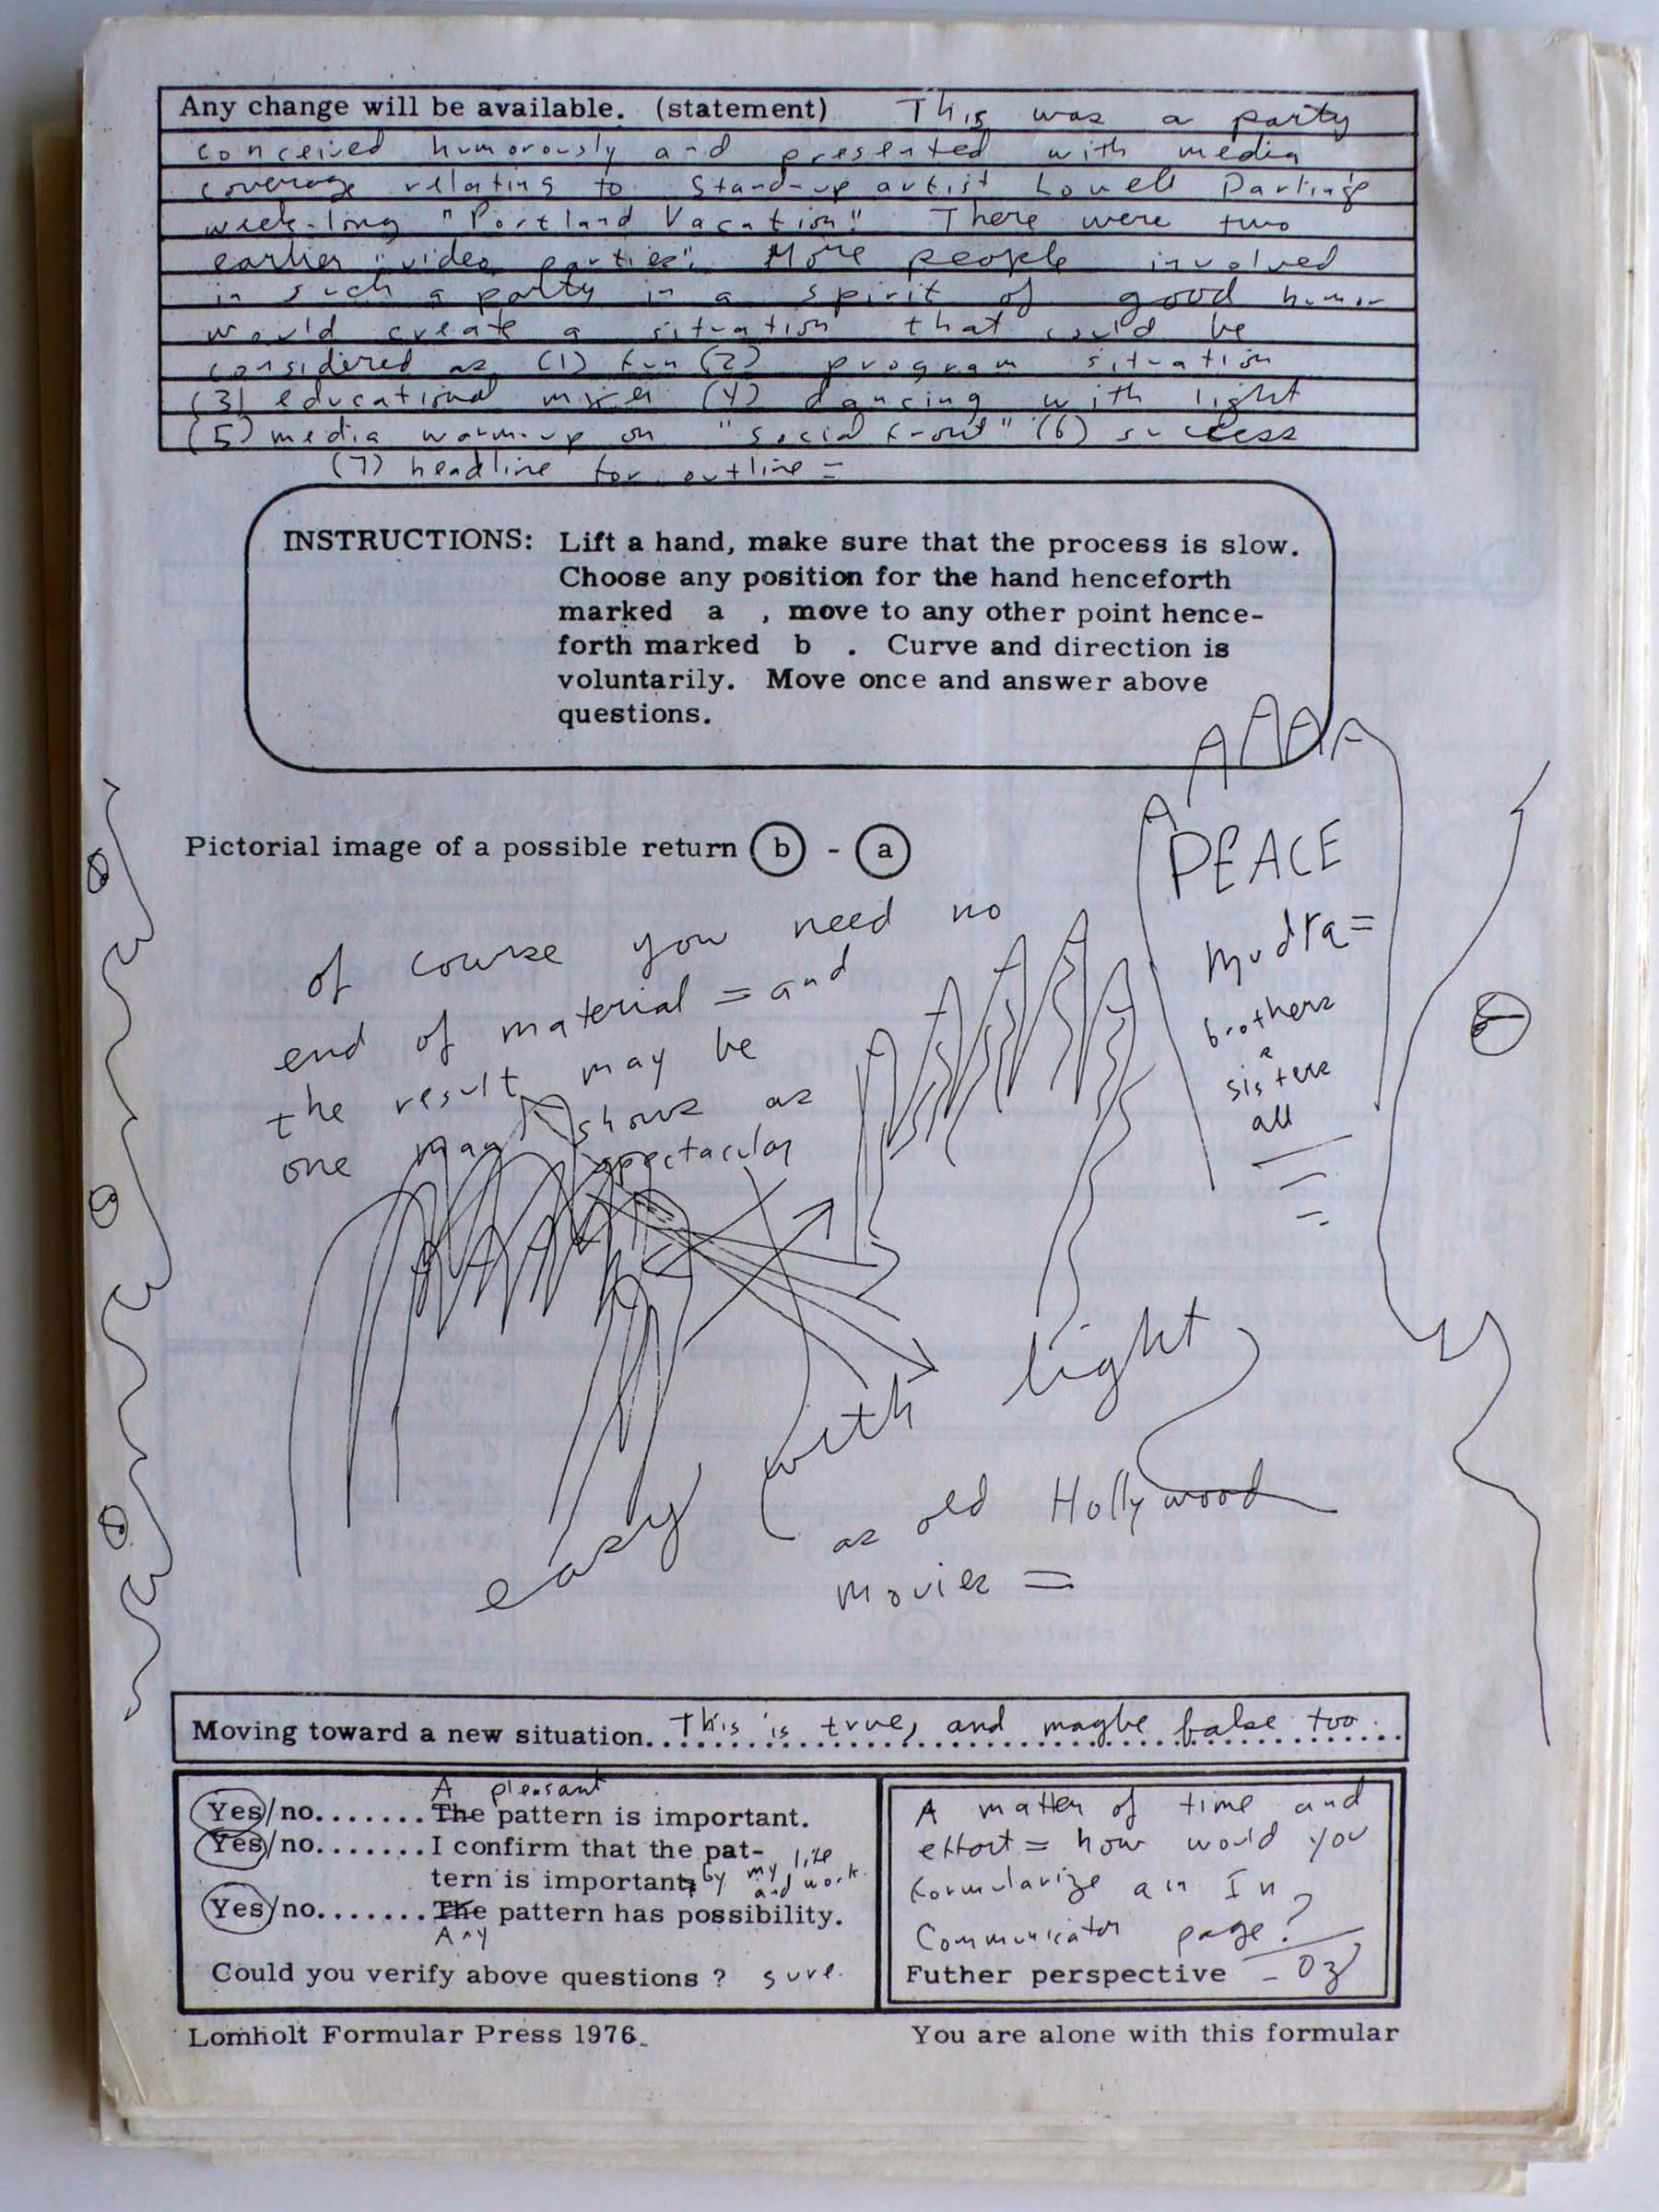 Any change will be available. (statement) This was a party
conceived humorously and presented with media
coverage relating to stand-up artist Lowell Darling's
week-long "Portland Vacation." There were two
earlier "video parties". More people involved
in such a party in a spirit of good humor
would create a situation that could be
considered as (1) fun (2) program situation
(3) educational mixer (4) dancing with light
(5) media warm-up on "social front" (6) success
(7) headline for outline =
INSTRUCTIONS: Lift a hand, make sure that the process is slow.
Choose any position for the hand henceforth
marked a , move to any other point hence-
forth marked b . Curve and direction is
voluntarily. Move once and answer above
questions.
Pictorial image of a possible return b - a
of course you need no
end of material = and
the result may be
one man shows as
spectacular
easy with light
as old Hollywood
movies =
PEACE
mudra =
brothers
&
sisters
all
Moving toward a new situation. This is true, and maybe false too.
A pleasant
Yes/no.......The pattern is important.
Yes/no.......I confirm that the pat-
tern is important by my life and work.
Yes/no.......The pattern has possibility.
Any
Could you verify above questions ? sure.
A matter of time and
effort = how would you
formularize an In
Communicator page?
Futher perspective - Oz
Lomholt Formular Press 1976.
You are alone with this formular